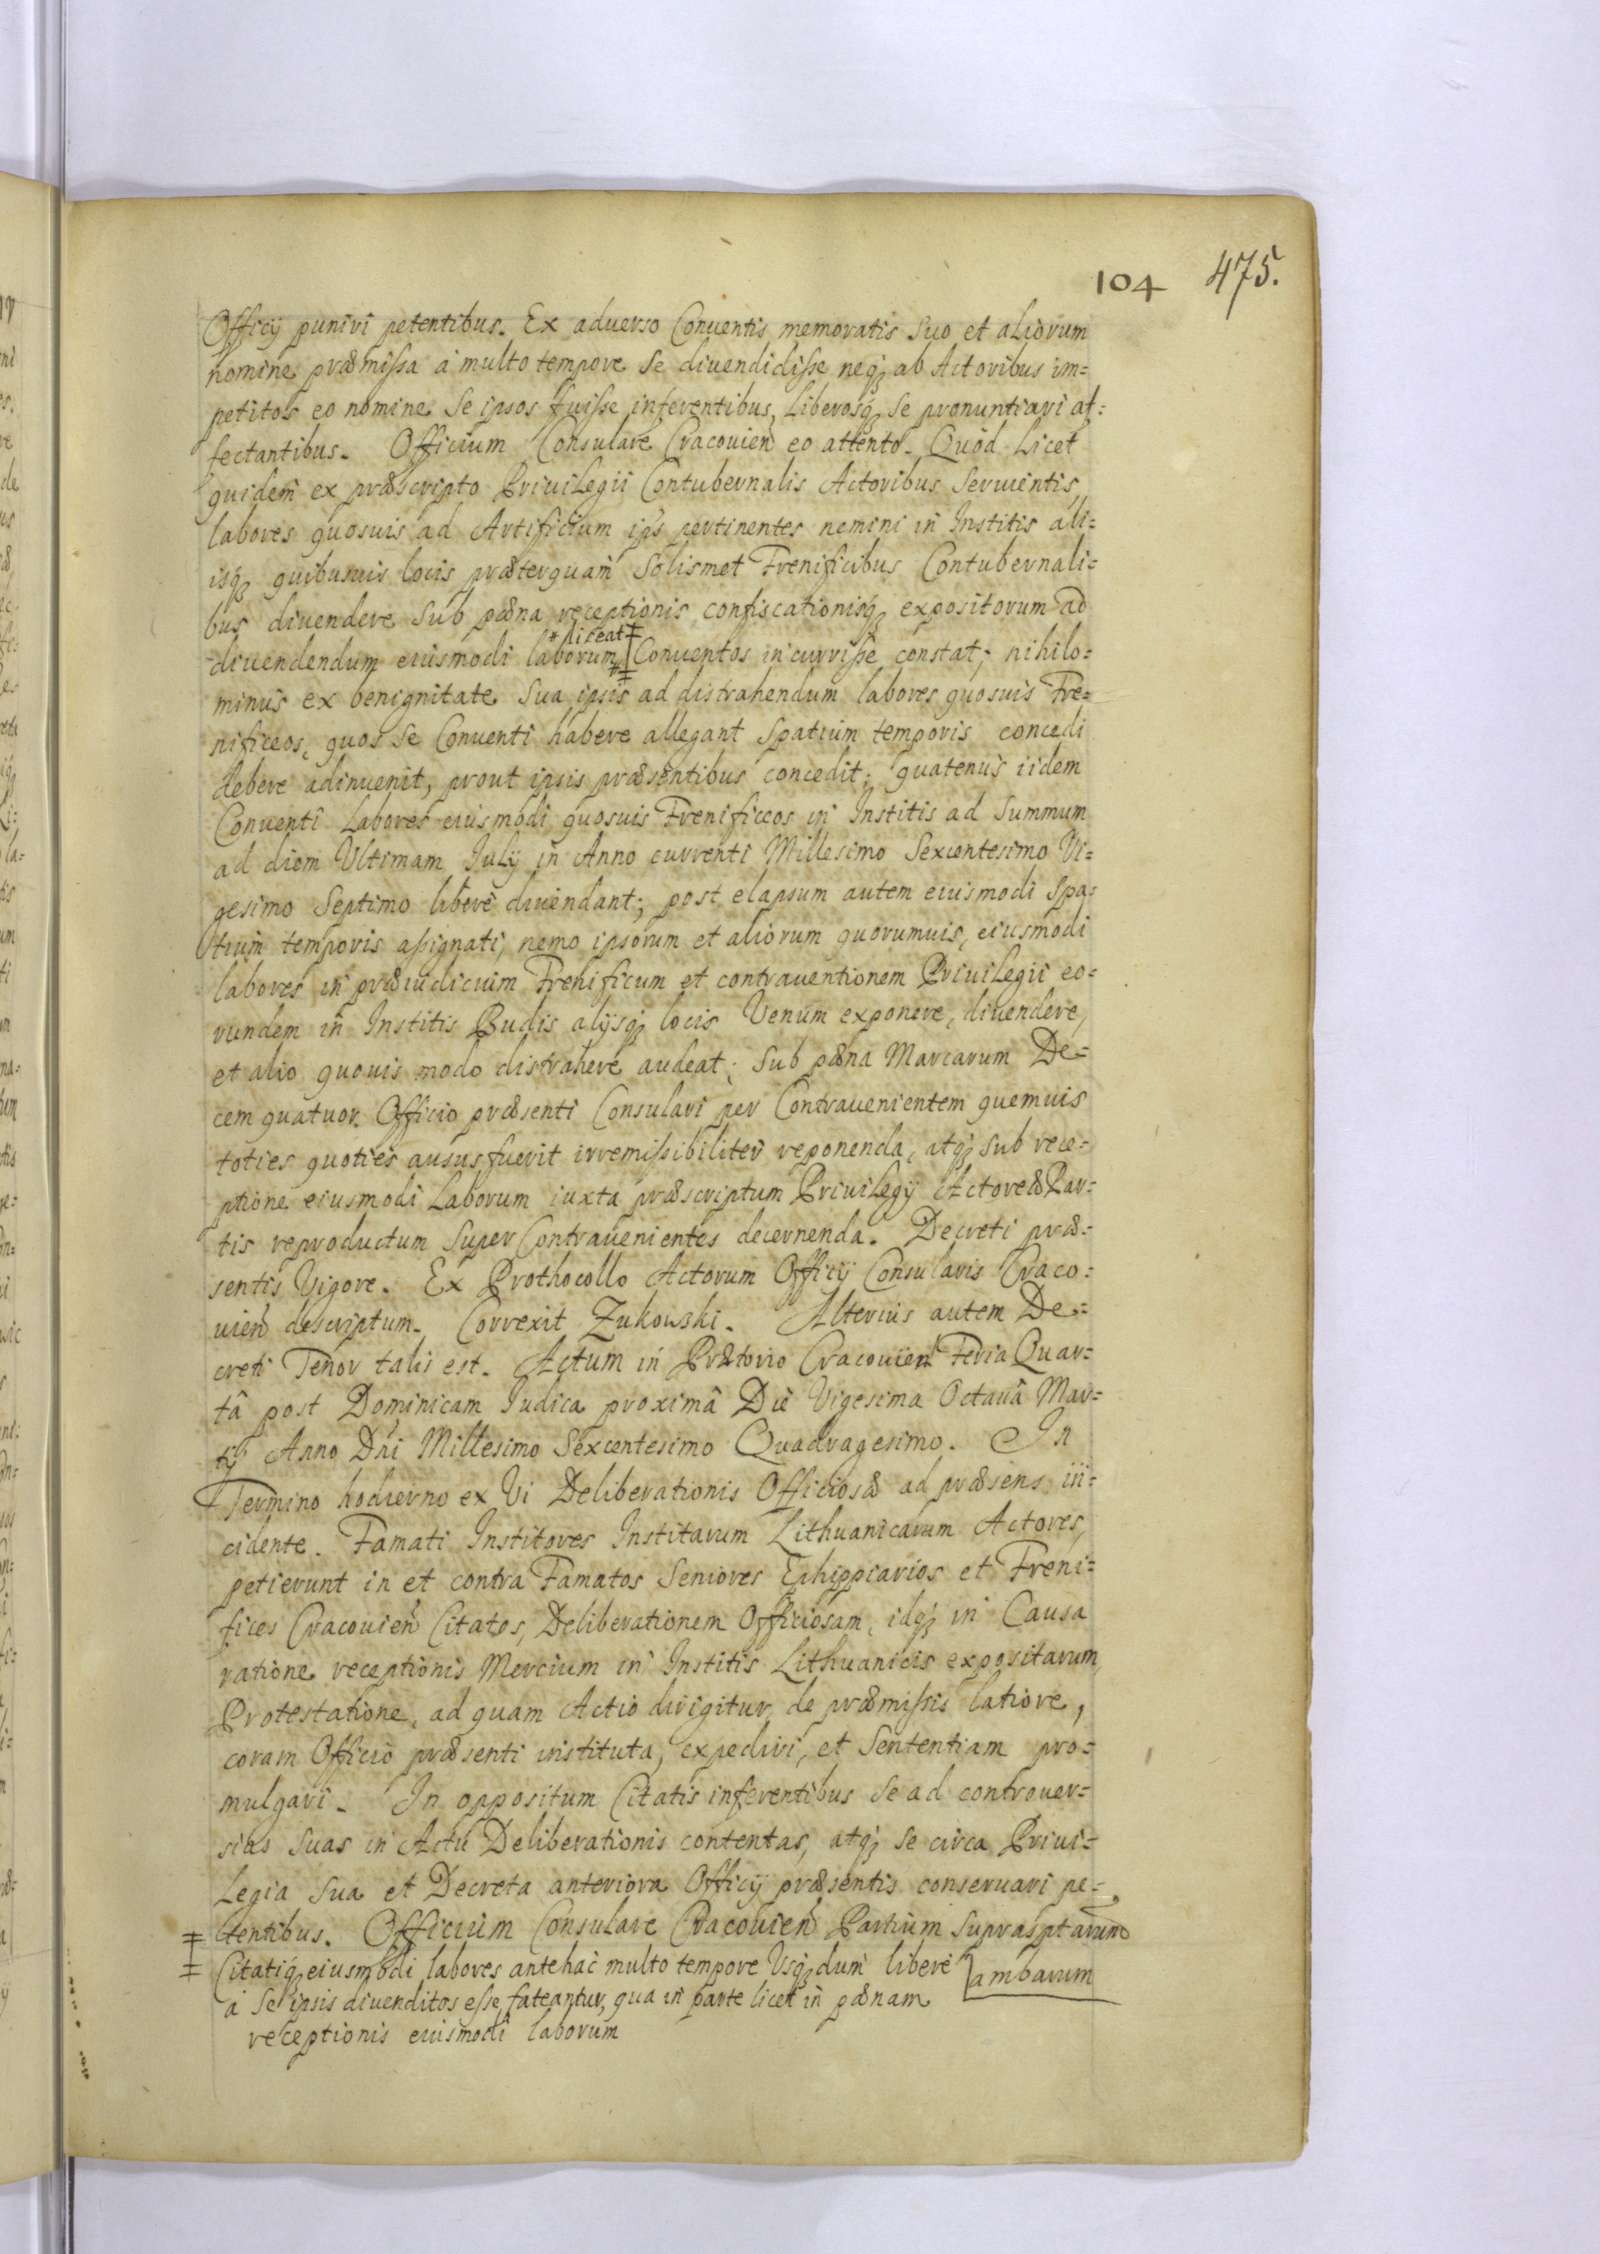 104 475.
Officij puniri petentibus. Ex aduerso Conuentis memoratis suo et aliorum
nomine præmissa à multo tempore se diuendidisse neq3 ab Actoribus im=
petitos eo nomine se ipsos fuisse inferentibus, Liberosq3 se pronuntiari af=
fectantibus. Officium Consulare Cracouien eo attento. Quòd Licet
quidem ex præscripto Priuilegii Contubernalis Actoribus seruientis,
labores quosuis ad Artificium ips pertinentes nemini in Institis ali=
isq3 quibusuis locis præterquam solismet Frenificibus Contubernali=
bus diuendere sub pæna receptionis confiscationisq3 expositorum ad
* liceat ‡
diuendendum eiusmodi laborum Conuentos incurrisse constat; nihilo=
minus ex benignitate sua ipsis ad distrahendum labores quosuis Fre=
nificeos, quos se Conuenti habere allegant spatium temporis concedi
debere adinuenit, prout ipsis præsentibus concedit; quatenus iidem
Conuenti Labores eiusmodi quosuis Frenificeos in Institis ad summum
ad diem Vltimam Julij in Anno currenti Millesimo Sexcentesimo Vi=
gesimo Septimo liberè diuendant; post elapsum autem eiusmodi spa=
tium temporis assignati, nemo ipsorum et aliorum quorumuis, eiusmodi
labores in præiudicium Frenificum et contrauentionem Priuilegii eo=
rundem in Institis Budis alijsq3 locis Venum exponere, diuendere,
et alio quouis modo distrahere audeat; sub pæna Marcarum De=
cem quatuor Officio præsenti Consulari per Contrauenientem quemuis
toties quoties ausus fuerit irremissibiliter reponenda, atq3 sub rece=
ptione eiusmodi Laborum iuxta præscriptum Priuilegij Actoreæ Par=
tis reproductum super Contrauenientes decernenda. Decreti præ=
sentis Vigore. Ex Prothocollo Actorum Officij Consularis Craco=
uien descriptum. Correxit Zukowski. Alterius autem De=
creti Tenor talis est. Actum in Prætorio Cracouien Feria Quar=
tâ post Dominicam Judica proximâ Die Vigesima Octauâ Mar=
tij Anno Dni Millesimo Sexcentesimo Quadragesimo. In
Termino hodierno ex Vi Deliberationis Officiosæ ad præsens in=
cidente. Famati Institores Institarum Lithuanicarum Actores,
petierunt in et contra Famatos Seniores Ephippiarios et Freni=
fices Cracouien Citatos, Deliberationem Officiosam, idq3 in Causa
ratione receptionis Mercium in Institis Lithuanicis expositarum,
Protestatione, ad quam Actio dirigitur, de præmissis latiore,
coram Officio præsenti instituta, expediri, et Sententiam pro=
mulgari. In oppositum Citatis inferentibus se ad controuer=
sias suas in Actu Deliberationis contentas, atq3 se circa Priui=
Legia sua et Decreta anteriora Officij præsentis conseruari pe=
tentibus. Officium Consulare Cracouien Partium suprasptarum
‡ Citatiq3 eiusmodi labores antehac multo tempore Vsq3 dum liberè ambarum
‡ à se ipsis diuenditos esse fateantur, qua in parte licet in pænam
receptionis eiusmodi laborum